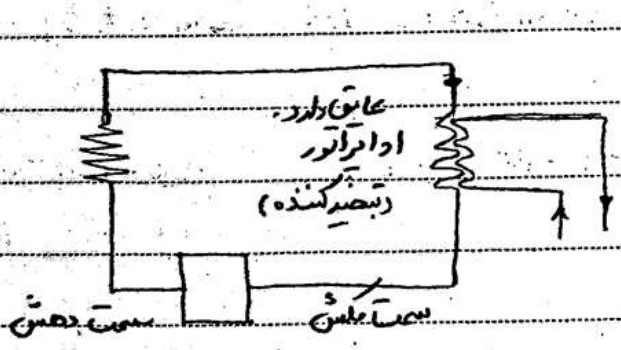 عایق دارد.
اواپراتور
(تبخیر کننده)
سمت مکش
سمت دهش